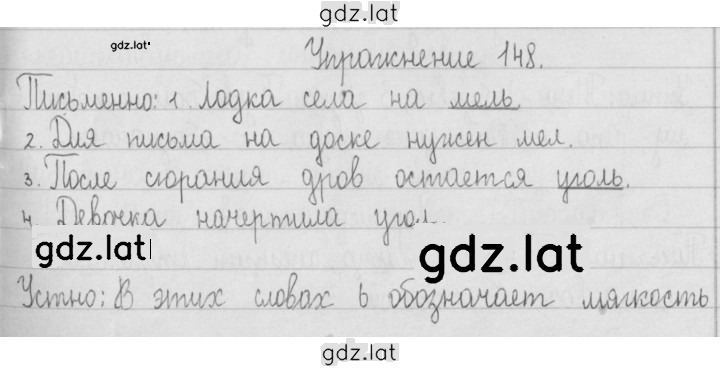 gdz.lat
gdz.lat
Упражнение 148.
Письменно: 1. Лодка села на мель.
2. Для письма на доске нужен мел.
3. После сгорания дров остается уголь.
4. Девочка начертила угол.
gdz.lat
gdz.lat
Устно: В этих словах ь обозначает мягкость
gdz.lat